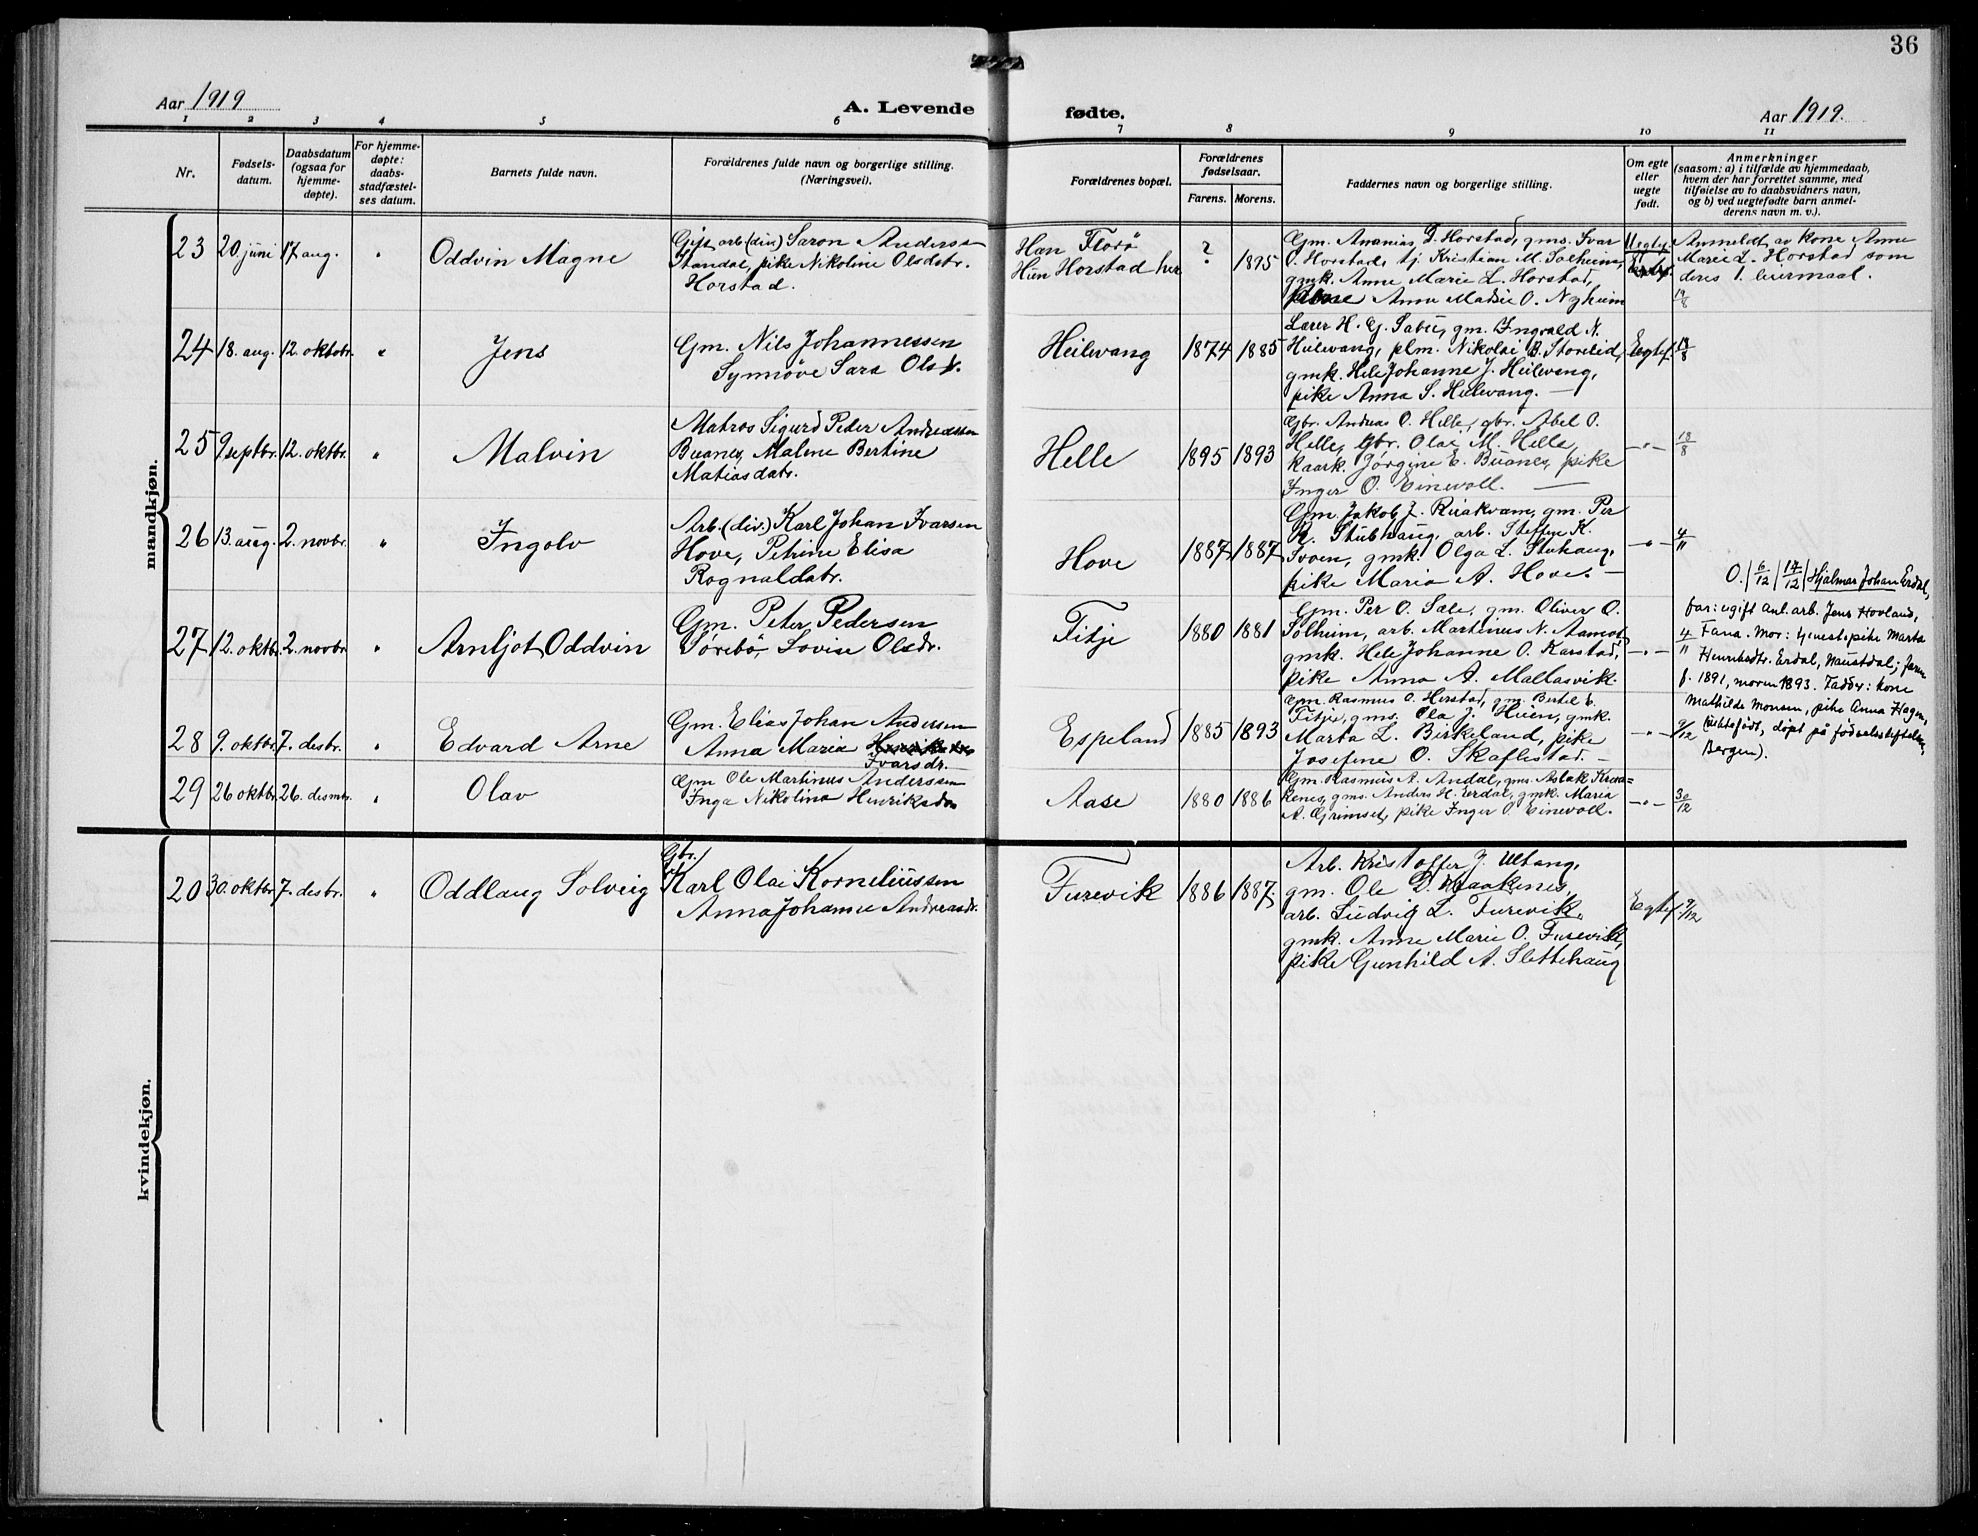 36
Aar 1919
A. Levende
fødte.
Aar 1919.
1 2 3 4 5 6 7 8 9 10 11
Nr.
Fødsels-
datum.
Daabsdatum
(ogsaa for
hjemme-
døpte).
For hjemme-
døpte:
daabs-
stadfæstel-
ses datum.
Barnets fulde navn.
Forældrenes fulde navn og borgerlige stilling.
(Næringsvei).
Forældrenes bopæl.
Forældrenes
fødselsaar.
Farens. Morens.
Faddernes navn og borgerlige stilling.
Om egte
eller
uegte
født.
Anmerkninger
(saasom: a) i tilfælde av hjemmedaab,
hvem der har forrettet samme, med
tilføielse av to daabsvidners navn,
og b) ved uegtefødte barn anmel-
derens navn m. v.).
mandkjøn.
23 20 juni 17 aug. " Oddvin Magne
Gift arb. (div.) Saron Anders.
Standal, pike Nikoline Olsdatr.
Horstad.
Han Florø
Hun Horstad her
? 1895
Gm. Ananias D. Horstad, gms. Ivar
O. Horstad, tj. Kristian M. Solheim,
gmk. Anne Marie L. Horstad,
Anna Matsie O. Nyheim
Uegtef.
Anmeldt av kone Anne
Marie L. Horstad som
deres 1. leiermaal.
19/8
24 18. aug. 12. oktobr. " Jens
Gm. Nils Johannessen
Synnøve Sara Olsdr.
Heilevang 1874 1885
Lærer H. G. Sabu, gm. Ingvald N.
Heilevang, plm. Nikolai B. Storelid,
gmk. Hele Johanne J. Heilevang,
pike Anna S. Heilevang. —
Egtef. 18/8
25 9 septbr. 12. oktbr. " Malvin
Matros Sigurd Peder Andreassen
Buanes, Malene Bertine
Matiasdatr.
Helle 1895 1893
Gbr. Andreas O. Helle, gbr. Abel O.
Helle, gbr. Olai M. Helle,
kaark. Jørgine E. Buanes, pike
Inger O. Einevoll. —
—"— 18/8
26 13. aug. 2. novbr. " Ingolv
Arb. (div.) Karl Johan Ivarsen
Hove, Petrine Elisa
Rognaldatr.
Hove 1887 1887
Gm. Jakob J. Russkvam, gm. Per
R. Stubhaug, arb. Steffen K.
Svoen, gmk. Olga L. Stubhaug,
pike Maria A. Hove. —
—"— 4/11
27 12. oktbr. 2. novbr. " Arnljot Oddvin
Gm. Peter Pedersen
Sørebø, Lovise Olsdr.
Fitje 1880 1881
Gm. Per O. Sale, gm. Oliver O.
Solheim, arb. Martinus N. Aamot,
gmk. Hele Johanne O. Karstad,
pike Anna A. Mallasvik.
—"— 4/11
O. | 6/12 | 14/12 | Hjalmar Johan Erdal,
far: ugift anl. arb. Jens Hovland,
Fana. Mor: tjenestepike Marta
Henriksdtr. Erdal, Naustdal; faren
f. 1891, moren 1893. Faddr: kone
Mathilde Monsen, pike Anna Hagen,
(uektefødt, døpt på fødselsstiftelsen,
Bergen).
28 9. oktbr. 7. desbr. " Edvard Arne
Gm. Elias Johan Andersen
Anna Maria
Ivarsdr.
Espeland 1885 1893
Gm. Rasmus O. Herstad, gm. Bertil E.
Fitje, gms. Ola J. Heien, gmk.
Marta L. Birkeland, pike
Josefine O. Skaflestad. —
—"— 9/12
29 26 oktbr. 26. desmbr. " Olav
Gm Ole Martinus Anderssen
Inga Nikolina Henriksdtr
Aase 1880 1886
Gm. Rasmus A. Andal, gms. Aslak Kraa=
kenes, gms. Anders H. Erdal, gmk. Maria
A. Grimset, pike Inger O. Einevoll.
—"— 30/12
kvindekjøn.
20 30. oktbr. 7. desbr. " Oddlaug Solveig
Gbr.
Karl Olai Korneliussen
Anna Johanne Andreasdr.
Furevik 1886 1887
Arb. Kristoffer J. Ultang,
gm. Ole D. Kraakenes,
arb. Ludvig L. Furevik,
gmk. Anne Marie O. Furevik,
pike Gunhild A. Slettehaug
Egtef 9/12